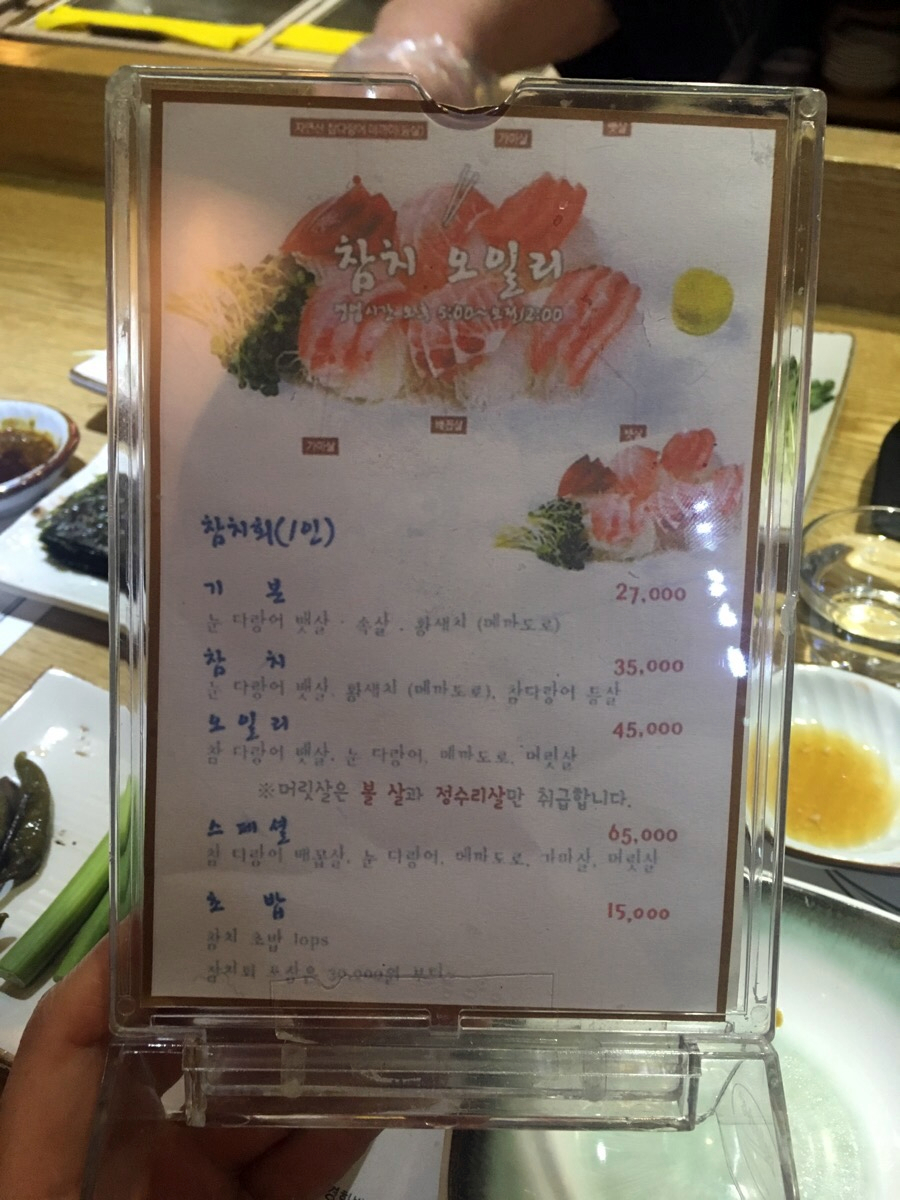 자연산 참다랑어 아까미(등살)
가마살
뱃살
참치 오일리
영업시간 오후 5:00~오전12:00
가마살
배꼽살
뱃살
참치회(1인)
기 본 27,000
눈 다랑어 뱃살 · 속살 . 황새치 (메까도로)
참 치 35,000
눈 다랑어 뱃살. 황새치 (메까도로), 참다랑어 등살
오일리 45,000
참 다랑어 뱃살, 눈 다랑어, 메까도로, 머릿살
※머릿살은 볼 살과 정수리살만 취급합니다.
스페셜 65,000
참 다랑어 배꼽살, 눈 다랑어, 메까도로, 가마살, 머릿살
초 밥 15,000
참치 초밥 10ps
참치회 포장은 30,000원 부터~